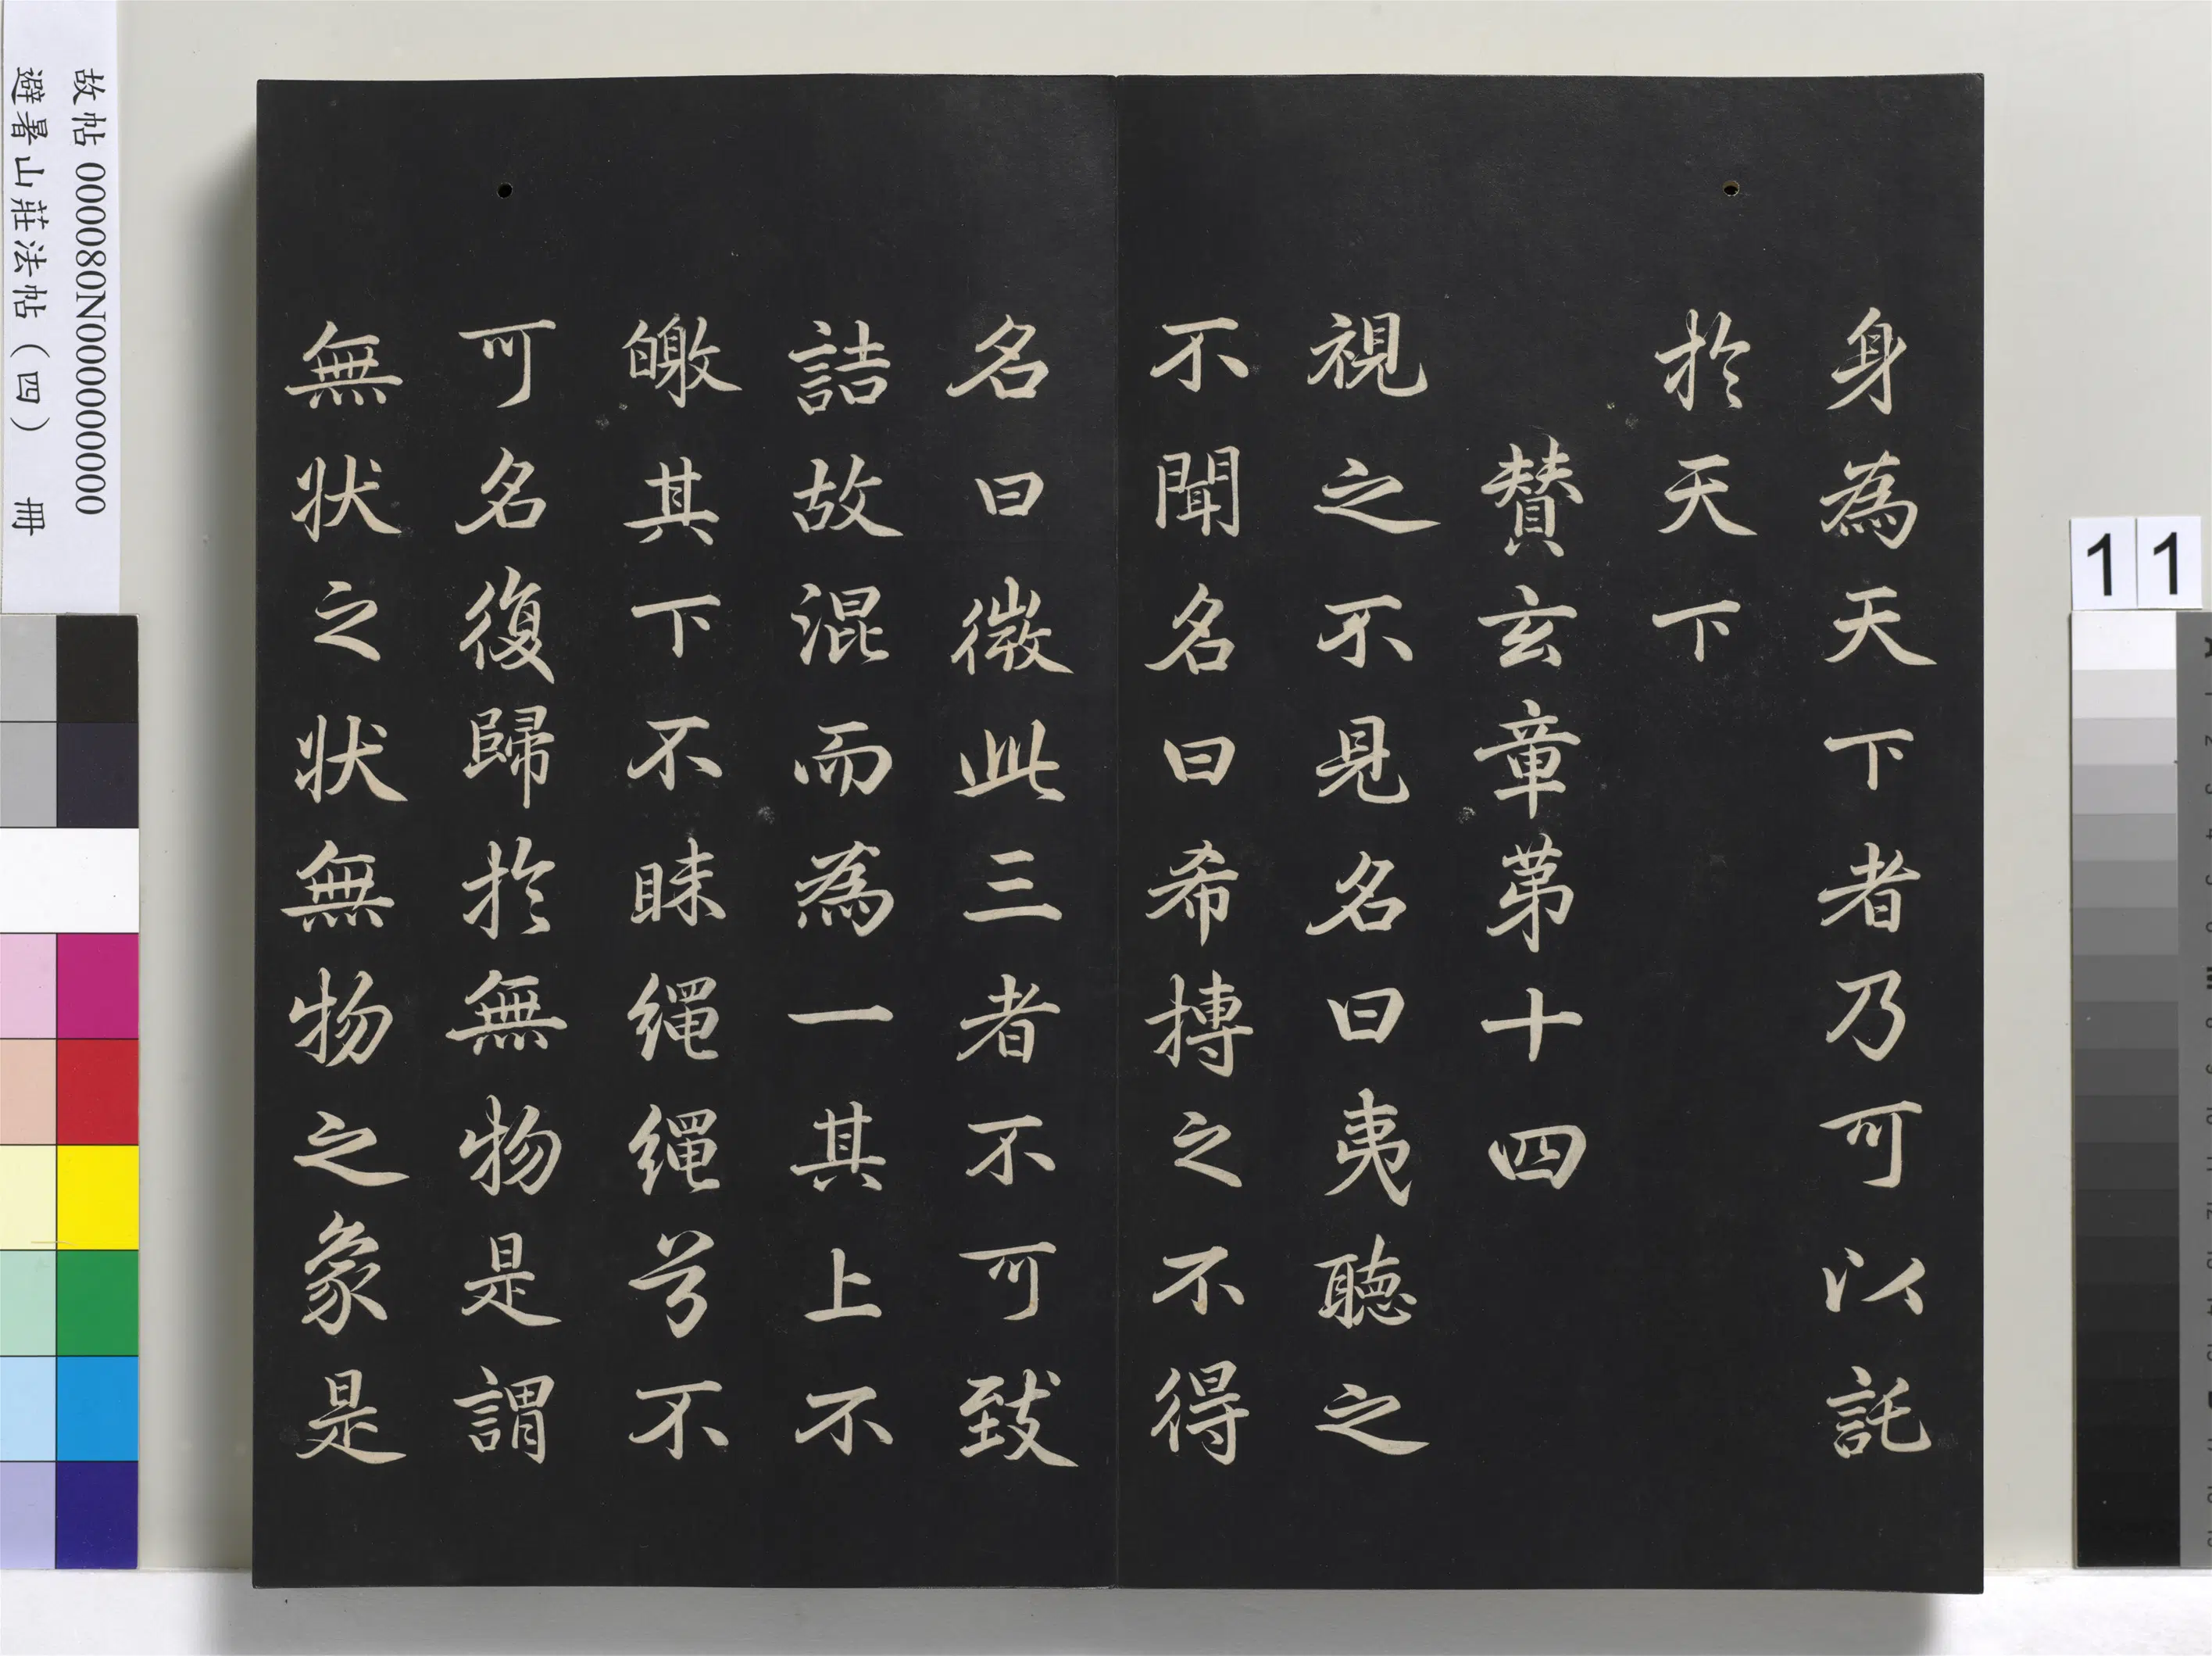 身為天下者乃可以託
於天下
贊玄章第十四
視之不見名曰夷聽之
不聞名曰希搏之不得
名曰微此三者不可致
詰故混而為一其上不
皦其下不昧繩繩兮不
可名復歸於無物是謂
無狀之狀無物之象是
故帖 000080N000000000
避暑山莊法帖（四） 冊
11